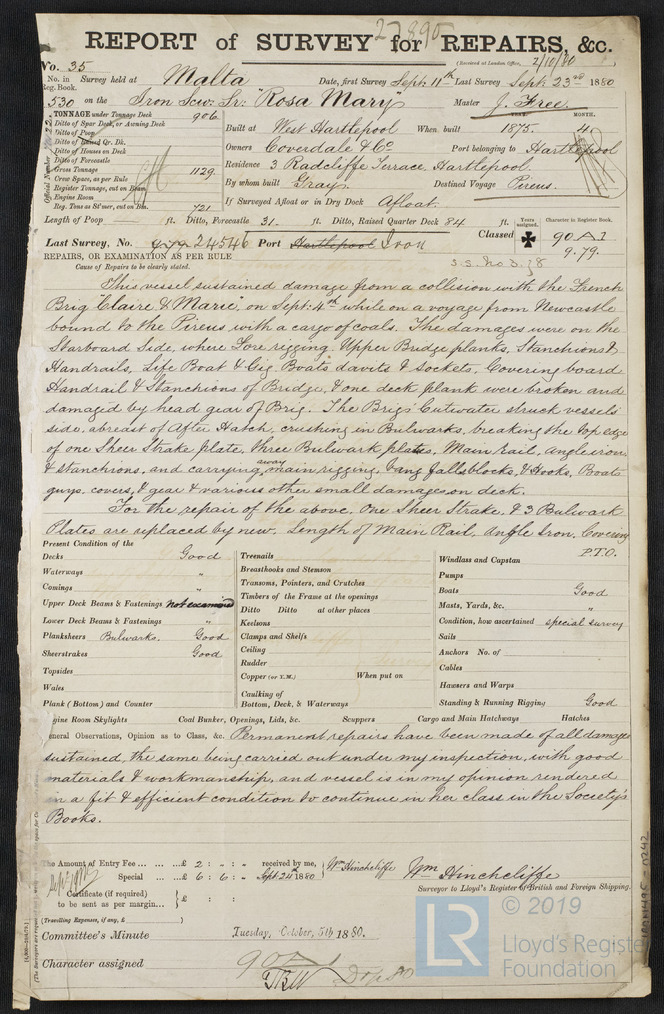 27895
REPORT of SURVEY for REPAIRS, &c.
(Received at London Office, 2/10/80
No. 35
No. in Survey held at Malta Date, first Survey Sept. 11th Last Survey Sept. 23rd 1880
Reg. Book.
530 on the Iron Scw: Sr: "Rosa Mary" Master J. Free.
TONNAGE under Tonnage Deck 906
Ditto of Spar Deck, or Awning Deck
Ditto of Poop
Ditto of Raised Qr. Dk.
Ditto of Houses on Deck
Ditto of Forecastle
Gross Tonnage 1129.
Crew Space, as per Rule
Register Tonnage, cut on Beam
Engine Room
Reg. Tons as St'mer, cut on Bm. 721
Official Number
YEAR. MONTH.
Built at West Hartlepool When built 1875. 4
Owners Coverdale & Co Port belonging to Hartlepool
Residence 3 Radcliffe Terrace. Hartlepool.
By whom built Gray. Destined Voyage Pireus.
If Surveyed Afloat or in Dry Dock Afloat.
Length of Poop ft. Ditto, Forecastle 31. ft. Ditto, Raised Quarter Deck 84 ft.
Years assigned. Character in Register Book.
Last Survey, No. 24546 Port Hartlepool Iron Classed 90 A 1
9.79.
REPAIRS, OR EXAMINATION AS PER RULE
S.S. No 3. 78
Cause of Repairs to be clearly stated.
This vessel sustained damage from a collision with the French
Brig "Claire & Marie", on Sept: 4th while on a voyage from Newcastle
bound to the Pireus with a cargo of coals. The damages were on the
Starboard Side, where Fore rigging, Upper Bridge planks, Stanchions &
Handrails, Life Boat & Gig Boats davits & Sockets, Covering board
Handrail & Stanchions of Bridge, & one deck plank were broken and
damaged by head gear of Brig. The Brigs Cutwater struck vessels
side, abreast of After Hatch, crushing in Bulwarks, breaking the top edge
of one Sheer Strake plate, three Bulwark plates, Main Rail, angle iron,
& stanchions, and carrying away main rigging, Gang falls blocks, & Hooks, Boats
guys, covers, & gear & various other small damages on deck.
For the repair of the above, one Sheer Strake & 3 Bulwark
Plates are replaced by new. Length of Main Rail, Angle Iron, Covering
P.T.O.
Present Condition of the
Decks Good
Waterways "
Comings "
Upper Deck Beams & Fastenings not examined
Lower Deck Beams & Fastenings "
Planksheers Bulwarks. Good
Sheerstrakes Good
Topsides
Wales
Plank (Bottom) and Counter
Treenails
Breasthooks and Stemson
Transoms, Pointers, and Crutches
Timbers of the Frame at the openings
Ditto Ditto at other places
Keelsons
Clamps and Shelfs
Ceiling
Rudder
Copper (or Y.M.) When put on
Caulking of
Bottom, Deck, & Waterways
Windlass and Capstan
Pumps
Boats Good
Masts, Yards, &c. "
Condition, how ascertained special survey
Sails
Anchors No. of
Cables
Hawsers and Warps
Standing & Running Rigging Good
Engine Room Skylights Coal Bunker, Openings, Lids, &c. Scuppers Cargo and Main Hatchways Hatches
General Observations, Opinion as to Class, &c. Permanent repairs have been made of all damage
sustained, the same being carried out under my inspection, with good
materials & workmanship, and vessel is in my opinion rendered
in a fit & efficient condition to continue in her class in the Society's
Books.
The Amount of Entry Fee ... ... £ 2 : - : - received by me, Wm Hinchcliffe Wm Hinchcliffe
Special ... £ 6 : 6 : - Sept 24th 1880
Surveyor to Lloyd's Register of British and Foreign Shipping.
Certificate (if required) £ : :
to be sent as per margin...
(Travelling Expenses, if any, £ )
Committee's Minute Tuesday, October, 5th 1880.
Character assigned 90 A 1
© 2019
LR
Lloyd's Register
Foundation